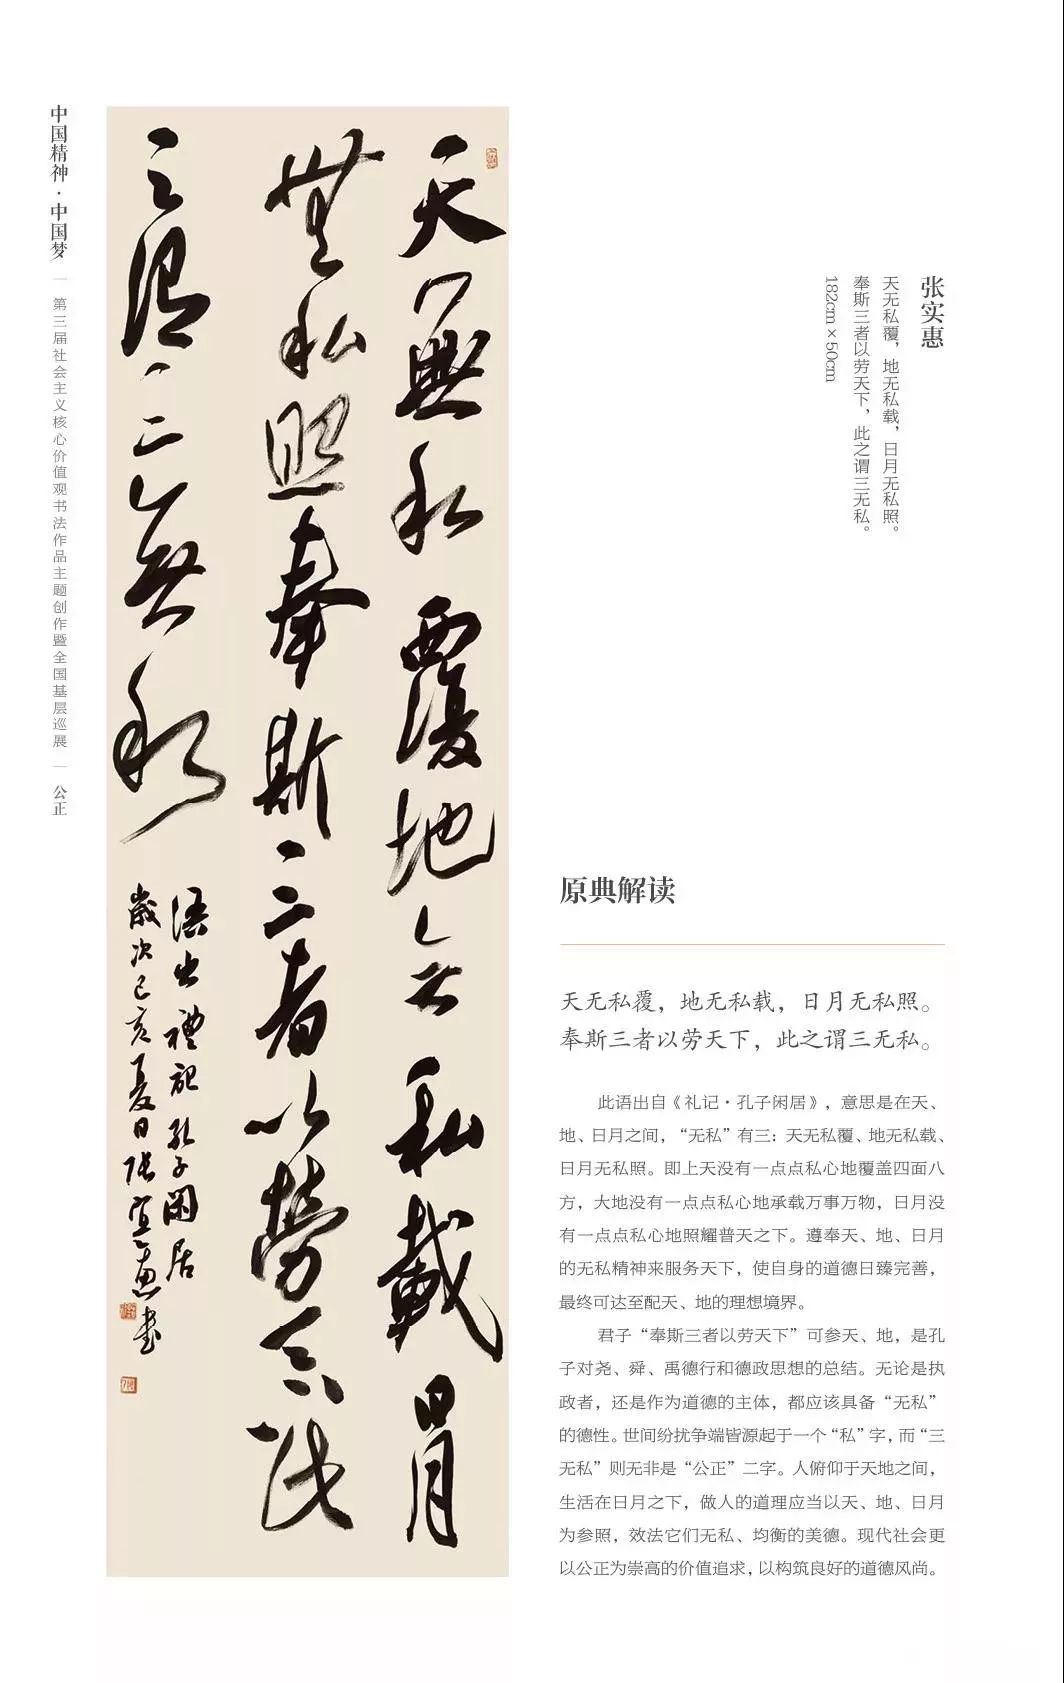 中国精神·中国梦 | 第三届社会主义核心价值观书法作品主题创作暨全国基层巡展 | 公正
天無私覆地无私載日月
無私照奉斯三者以勞天下此
之謂三無私
語出禮記孔子閑居
歲次己亥夏日張實惠書
张实惠
天无私覆，地无私载，日月无私照。
奉斯三者以劳天下，此之谓三无私。
182cm×50cm
原典解读
天无私覆，地无私载，日月无私照。
奉斯三者以劳天下，此之谓三无私。
此语出自《礼记·孔子闲居》，意思是在天、
地、日月之间，“无私”有三：天无私覆、地无私载、
日月无私照。即上天没有一点点私心地覆盖四面八
方，大地没有一点点私心地承载万事万物，日月没
有一点点私心地照耀普天之下。遵奉天、地、日月
的无私精神来服务天下，使自身的道德日臻完善，
最终可达至配天、地的理想境界。
君子“奉斯三者以劳天下”可参天、地，是孔
子对尧、舜、禹德行和德政思想的总结。无论是执
政者，还是作为道德的主体，都应该具备“无私”
的德性。世间纷扰争端皆源起于一个“私”字，而“三
无私”则无非是“公正”二字。人俯仰于天地之间，
生活在日月之下，做人的道理应当以天、地、日月
为参照，效法它们无私、均衡的美德。现代社会更
以公正为崇高的价值追求，以构筑良好的道德风尚。